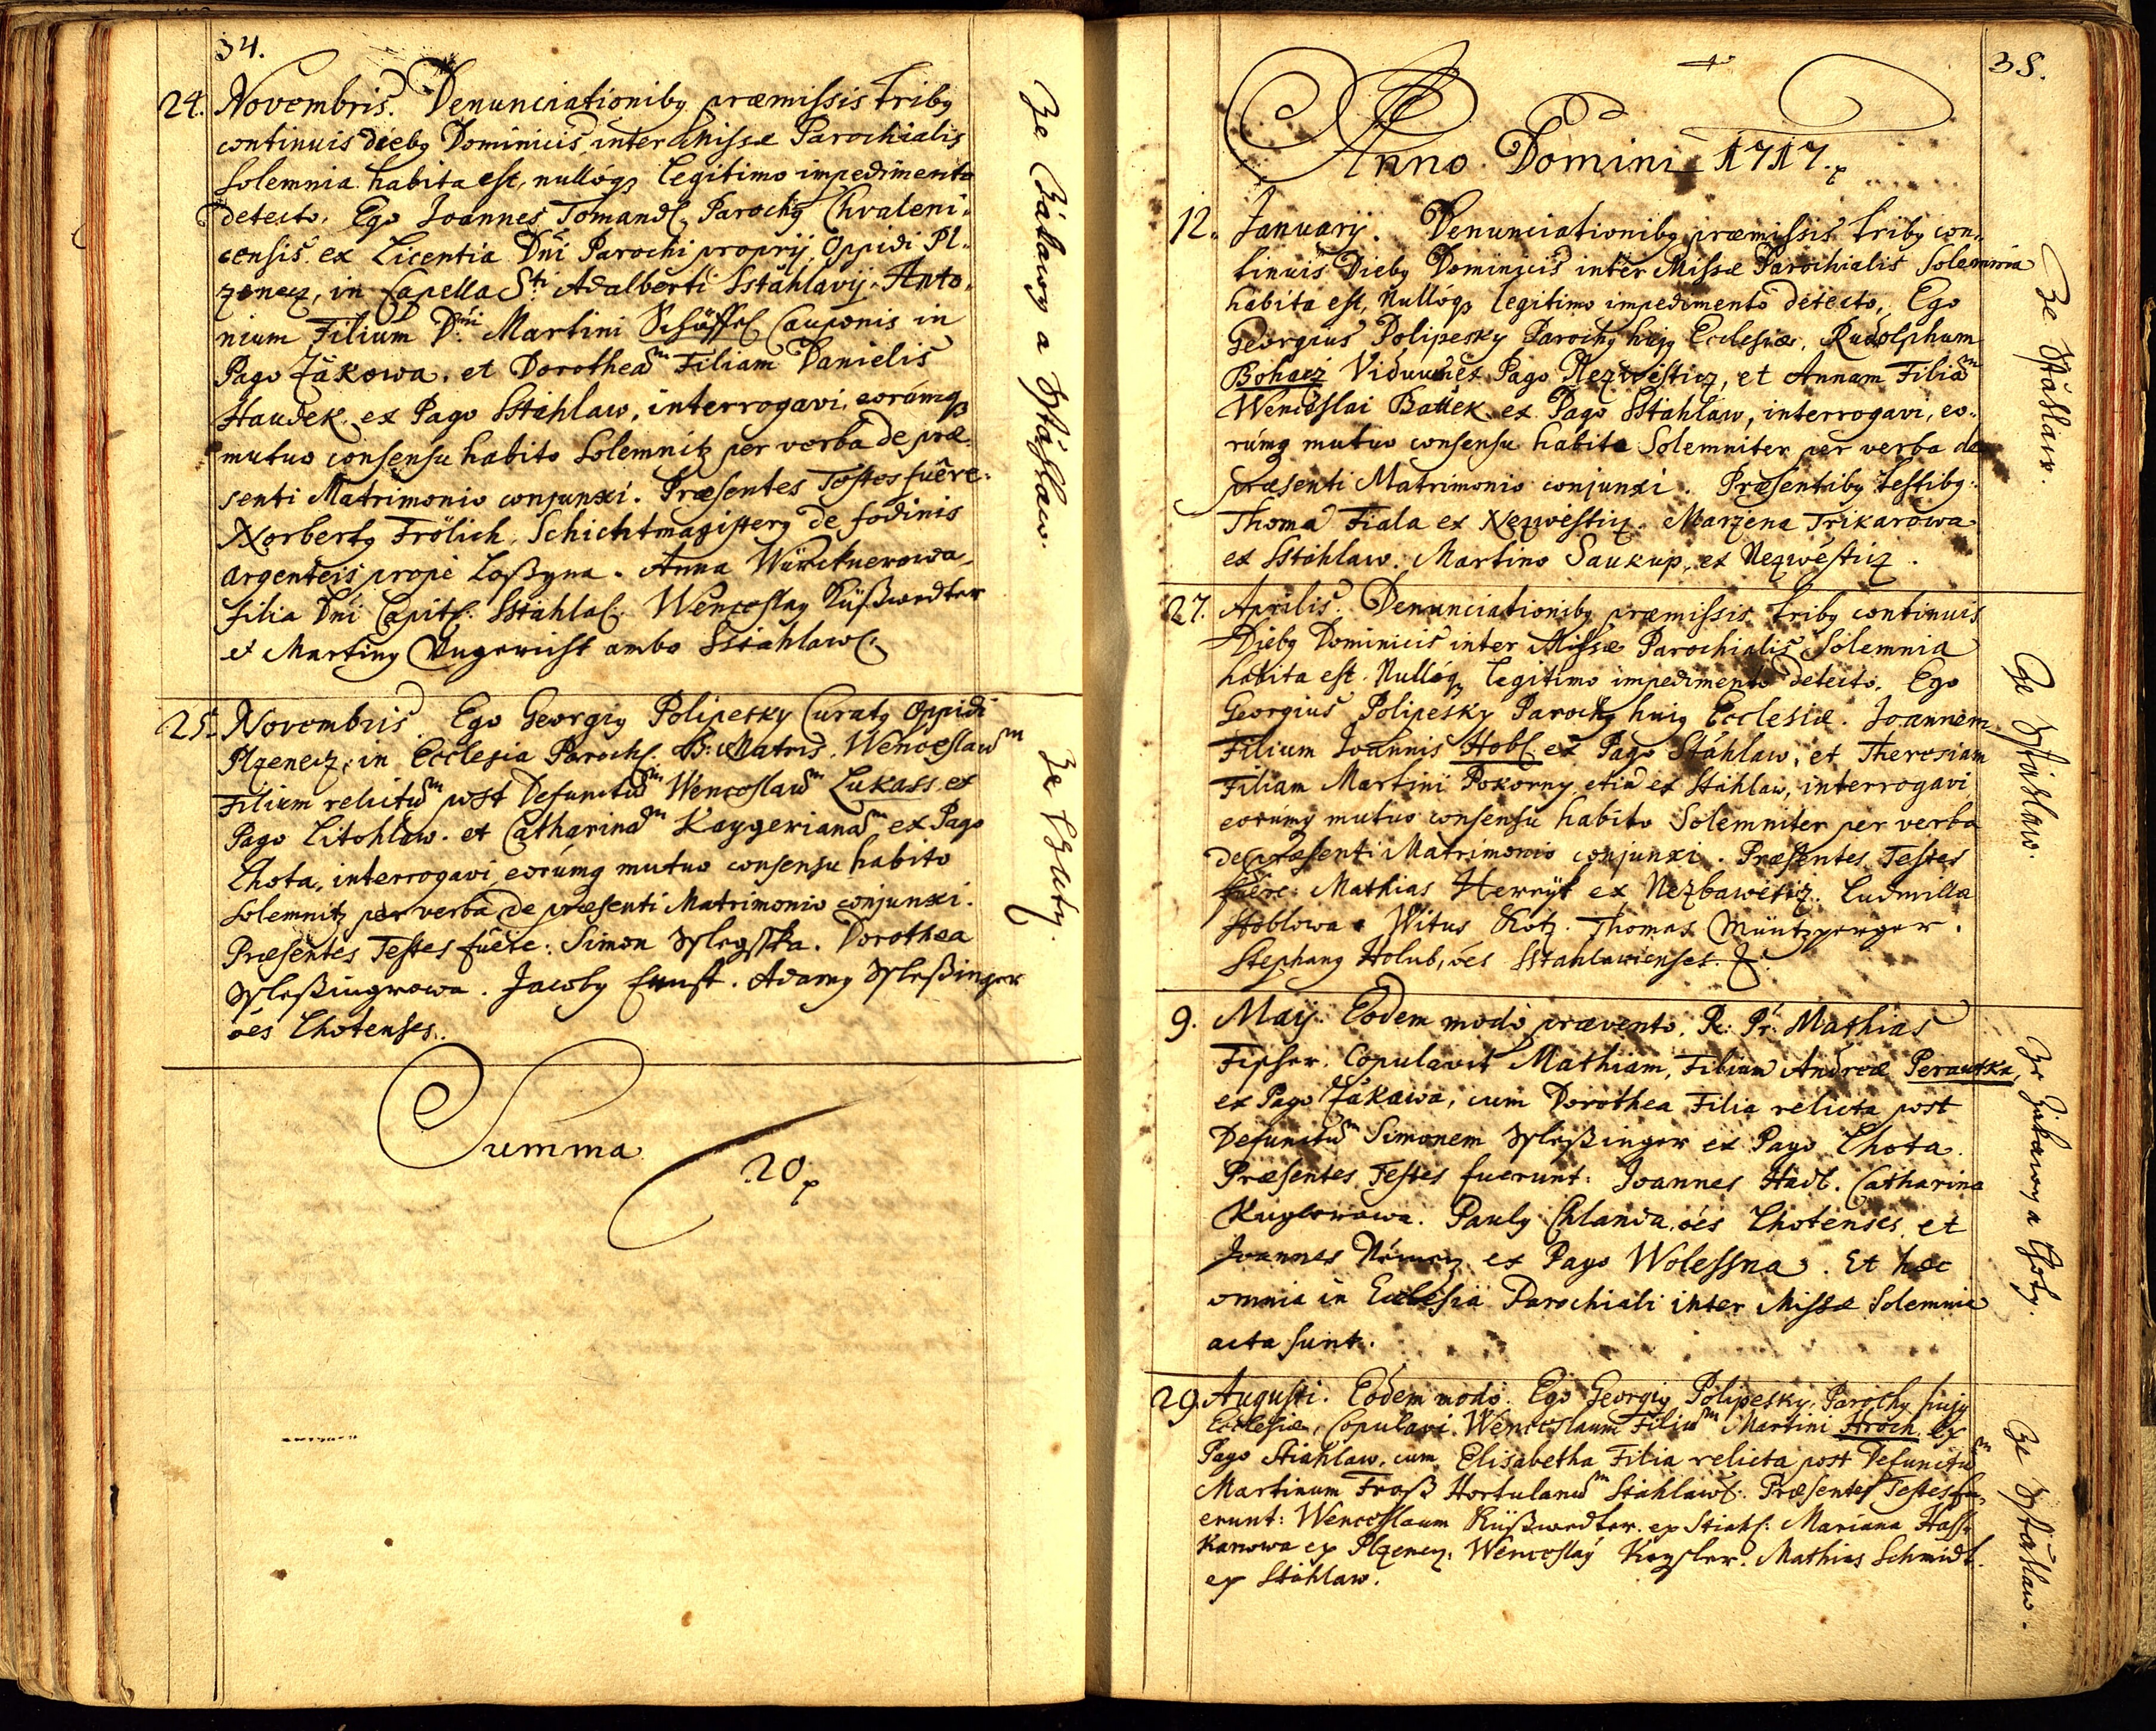 34.
24. Novembris. Denunciationibꝰ præmissis tribꝰ
continuis diebꝰ Dominicis inter Missæ Parochialis
Solemnia habita est, nullóqꝫ legitimo impedimento
detecto. Ego Joannes Tomandl, Parochꝰ Chvaleni-
censis ex Licentia Dñi Parochi proprij, Oppidi Pl-
zenecz, in Capella Sti Adalberti Sstáhlavÿ. Anto-
nium Filium D:ni Martini Schöffel Cauponis in
Pago Žákowa, et Dorotheam Filiam Danielis
Haudek ex Pago Sstáhlaw, interrogavi, eorúmqꝫ
mutuo consensu habito Solemnitꝫ per verba de præ-
senti Matrimonio conjunxi. Præsentes Testes fuêre:
Norbertꝰ Frölich, Schichtmagisterꝰ de fodinis
argenteis propè Loßyna. Anna Würcknerowa,
filia Dñi Capit: Sstáhla: Wenceslaꝰ Küßwedter
et Martinꝰ Ungericht ambo Sstáhlaw:
Ze Žákowy a Sťáhlaw.
25. Novembris. Ego Georgiꝰ Polipesky Curatꝰ Oppidi
Plzenecz, in Ecclesia Paroch: B: Matris. Wenceslaum
Filium relictum post Defunctum Wenceslaum Lukass ex
Pago Litohlaw. et Catharinam Kaygerianam ex Pago
Lhota, interrogavi, eorúmqꝫ mutuo consensu habito
Solemnitꝫ per verba de præsenti Matrimonio conjunxi.
Præsentes Testes fuêre: Simon. Dorothea
Sleßingrowa. Jacobꝰ Ernst. Adamꝰ Sleßinger
ôes Lhotenses.
Ze Lhuty.
Summa
20
35.
Anno Domini 1717.
12. Januarÿ. Denunciationibꝰ præmissis tribꝰ con-
tinuis Diebꝰ Dominicis inter Missæ Parochialis Solemnia
habita est, Nullóqꝫ legitimo impedimentô detecto, Ego
Georgius Polipesky Parochꝰ hujꝰ Ecclesiæ, Rudolphum
Bohacz Viduum ex Pago Nezwěsticz, et Annam Filiam
Wenceslai Battek ex Pago Sstáhlaw, interrogavi, eo-
rúmqꝫ mutuo consensu habito Solemniter per verba de
præsenti Matrimonio conjunxi. Præsentibꝰ testibꝰ:
Thoma Fiala ex Nezwěsticz. Marzena Trikarowa
ex Sstáhlaw. Martino Saukup, ex Nezwěsticz.
Ze Sťáhlaw.
27. Aprilis. Denunciationibꝰ præmissis tribꝰ continuis
Diebꝰ Dominicis inter Missæ Parochialis Solemnia
habita est. Nullóqꝫ legitimo impedimento detecto, Ego
Georgius Polipesky Parochꝰ huiꝰ Ecclesiæ. Joannem
Filium Joannis Hobl ex Pago Stáhlaw, et Theresiam
Filiam Martini Pokorny, etiã ex Stáhlaw, interrogavi,
eorúmqꝫ mutuo consensu habito Solemniter per verba
de præsenti Matrimonio conjunxi. Præsentes Testes
fuêre: Mathias Henryk ex Nezbawěticz. Ludmilla
Hoblowa. Witus Kotz. Thomas Müntzperger.
Stephanꝰ Holub, ôes Sstahlawienses.
Ze Sťáhlaw.
9. Maÿ. Eodem modo prævento. R: Pr: Mathias
Fischer. Copulavit Mathiam, Filium Andreæ Perautka,
ex Pago Žákawa, cum Dorothea Filia relicta post
Defunctum Simonem Sleßinger ex Pago Lhota.
Præsentes Testes fuerunt: Joannes Hadl. Catharina
Kuglerowa. Paulꝰ Chlanda, ôes Lhotenses, et
Joannes Němecz ex Pago Wolessna. Et hæc
omnia in Ecclesia Parochiali inter Missæ Solemnia
acta sunt.
Ze Žákawy a Lhoty.
29. Augusti. Eodem modo. Ego Georgiꝰ Polipesky, Parochꝰ hujꝰ
Ecclesiæ, Copulavi Wenceslaum Filium Martini Hroch, ex
Pago Stiáhlaw, cum Elisabetha Filia relicta post Defunctum
Martinum Froß Hortulanum Stáhlaw:. Præsentes Testes fu-
erunt: Wenceslaum Küßwedter ex Stiahl: Mariana Hass-
karowa ex Plzenecz. Wenceslaꝰ Kreysler. Mathias Schmidt
ex Stáhlaw.
Ze Sťáhlaw.